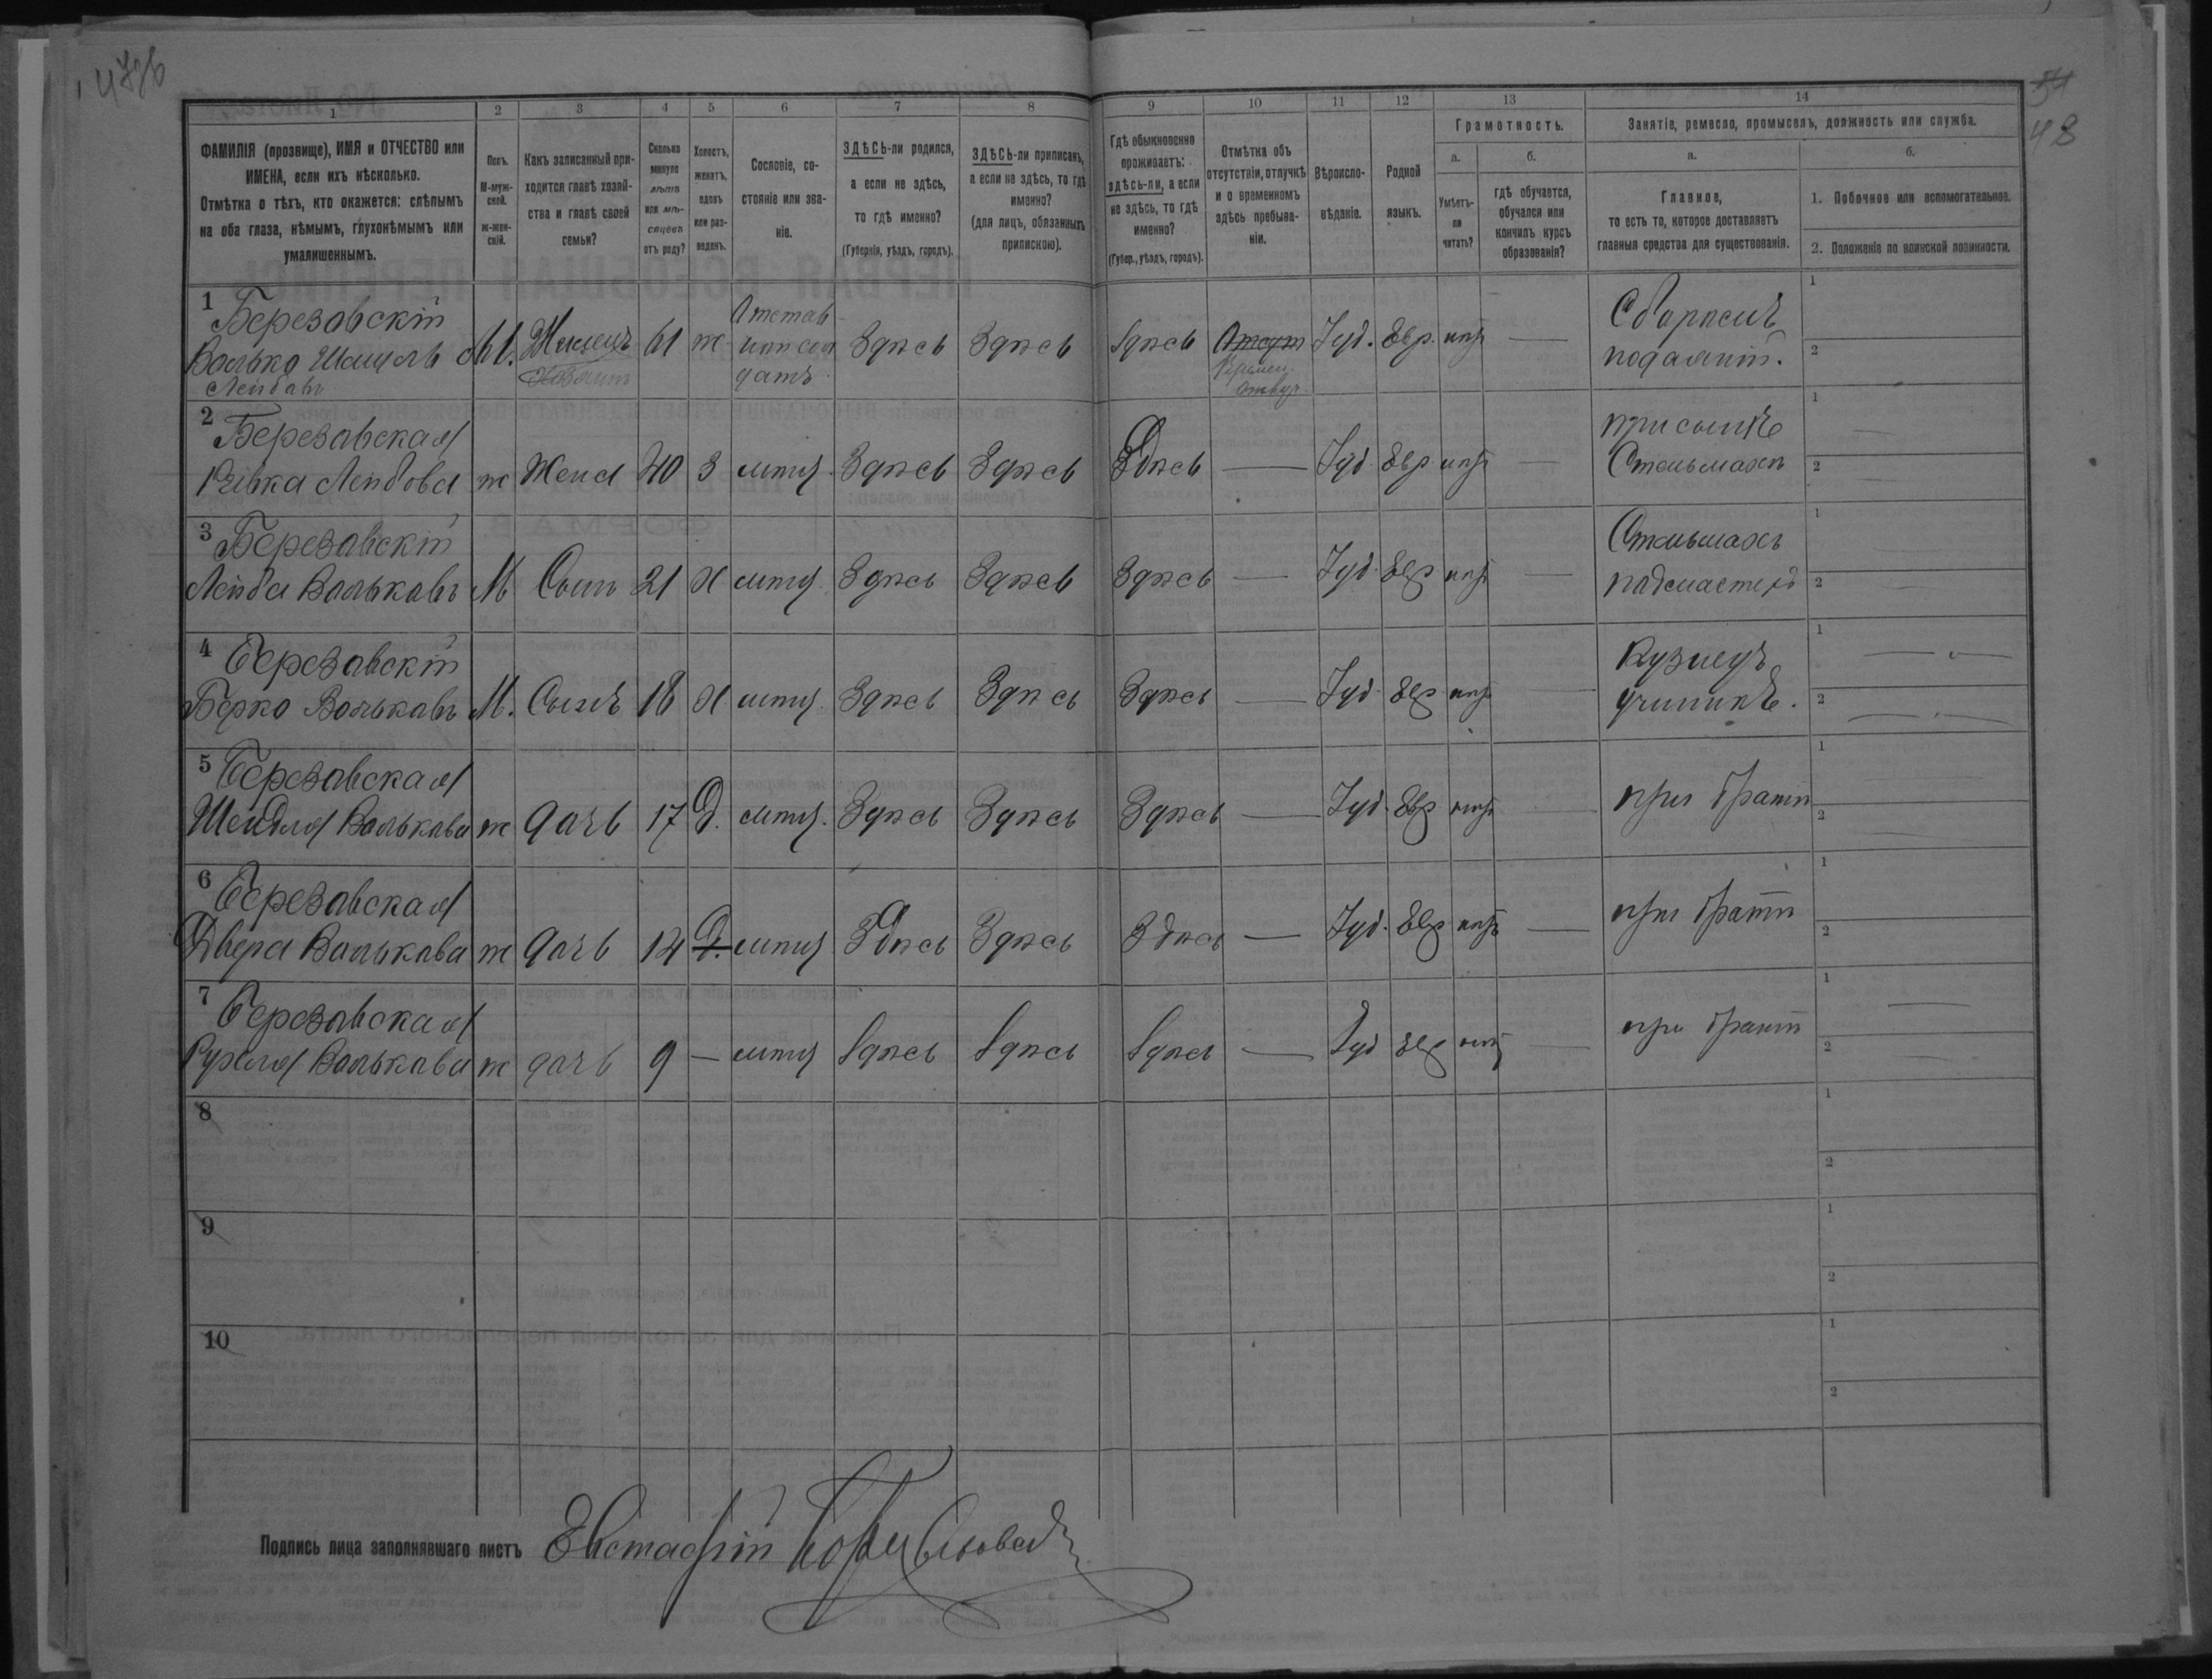 478б
54
48
1 2 3 4 5 6 7 8 9 10 11 12 13 14
ФАМИЛІЯ (прозвище), ИМЯ и ОТЧЕСТВО или
ИМЕНА, если ихъ нѣсколько.
Отмѣтка о тѣхъ, кто окажется: слѣпымъ
на оба глаза, нѣмымъ, глухонѣмымъ или
умалишеннымъ.
Полъ.
М-муж-
ской.
ж-жен-
скій.
Какъ записанный при-
ходится главѣ хозяй-
ства и главѣ своей
семьи?
Сколько
минуло
лѣтъ
или мѣ-
сяцевъ
отъ роду?
Холостъ,
женатъ,
вдовъ
или раз-
веденъ.
Сословіе, со-
стояніе или зва-
ніе.
ЗДѢСЬ-ли родился,
а если не здѣсь,
то гдѣ именно?
(Губернія, уѣздъ, городъ).
ЗДѢСЬ-ли приписанъ,
а если не здѣсь, то гдѣ
именно?
(для лицъ, обязанныхъ
припискою).
Гдѣ обыкновенно
проживаетъ:
здѣсь-ли, а если
не здѣсь, то гдѣ
именно?
(Губер., уѣздъ, городъ).
Отмѣтка объ
отсутствіи, отлучкѣ
и о временномъ
здѣсь пребыва-
ніи.
Вѣроиспо-
вѣданіе.
Родной
языкъ.
Грамотность.
а.
Умѣетъ-
ли
читать?
б.
гдѣ обучается,
обучался или
кончилъ курсъ
образованія?
Занятіе, ремесло, промыселъ, должность или служба.
а.
Главное,
то есть то, которое доставляетъ
главныя средства для существованія.
б.
1. Побочное или вспомогательное.
2. Положеніе по воинской повинности.
1 Березавскій
Валько
Лейбавъ
М. 61 ж
Отстав
Здѣсь Здѣсь Здѣсь Іуд. Евр. нѣтъ —
1
2
2 Березавская
Рівка Лейбова ж Жена 40 З мѣщ. Здѣсь Здѣсь Здѣсь — Іуд Евр нѣтъ —
Стельмахъ
1 —
2 —
3 Березавскій
Лейба Вальковъ М Сынъ 21 Х мѣщ. Здѣсь Здѣсь Здѣсь — Іуд. Евр нѣтъ —
Стельмахъ
1
2 —
4 Березавскій
Берко Вальковъ М. Сынъ 18 Х мѣщ. Здѣсь Здѣсь Здѣсь — Іуд. Евр нѣтъ —
Кузнецъ
1 —
2 —
5 Березавская
Шейдля Валькава ж дачь 17 Д. мѣщ. Здѣсь Здѣсь Здѣсь — Іуд. Евр нѣтъ —
при братѣ
1
2
6 Березавская
Двера Валькава ж дачь 14 Д. мѣщ Здѣсь Здѣсь Здѣсь — Іуд. Евр нѣтъ —
при братѣ
1
2
7 Березавская
Рухля Валькава ж дачь 9 — мѣщ Здѣсь Здѣсь Здѣсь — Іуд Евр нѣтъ —
при братѣ
1 —
2 —
8 1
2
9 1
2
10 1
2
Подпись лица заполнявшаго листъ Евстафій